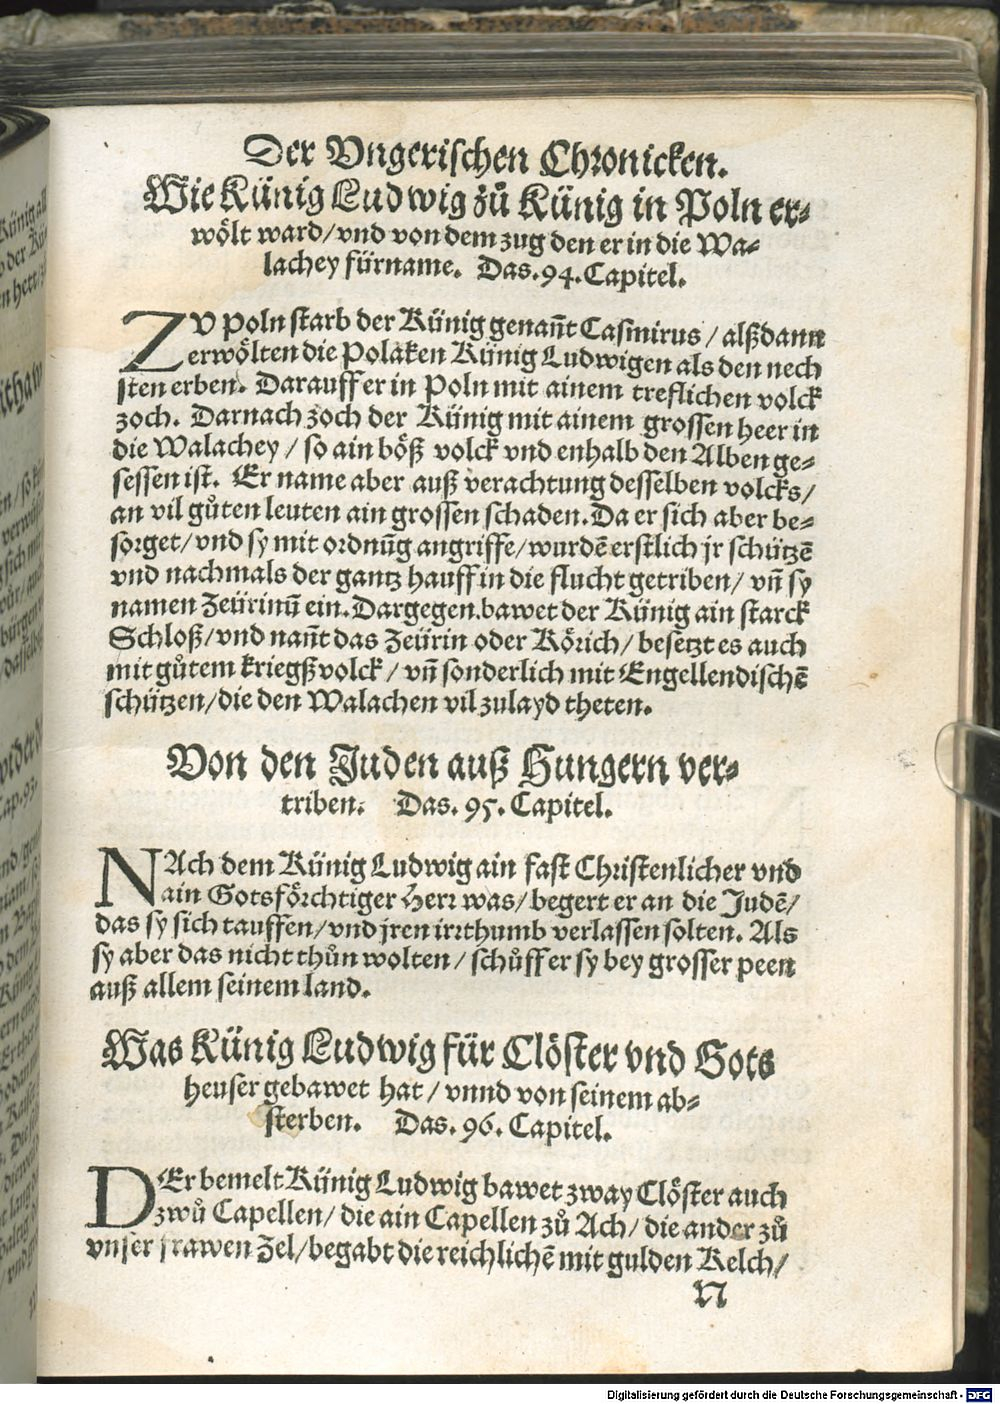 Der Vngerischen Chronicken.
Wie Künig Ludwig zů Künig in Poln er-
wölt ward/vnd von dem zug den er in die Wa-
lachey fürname. Das.94.Capitel.
ZV Poln starb der Künig genañt Casmirus/alßdann
erwölten die Polaken Künig Ludwigen als den nech
sten erben. Darauff er in Poln mit ainem treflichen volck
zoch. Darnach zoch der Künig mit ainem grossen heer in
die Walachey/so ain böß volck vnd enhalb den Alben ge-
sessen ist. Er name aber auß verachtung desselben volcks/
an vil gůten leuten ain grossen schaden.Da er sich aber be-
sorget/vnd sy mit ordnũg angriffe/wurdẽ erstlich jr schützẽ
vnd nachmals der gantz hauff in die flucht getriben/vñ sy
namen Zeürinũ ein.Dargegen bawet der Künig ain starck
Schloß/vnd nañt das Zeürin oder Körich/besetzt es auch
mit gůtem kriegßvolck/vñ sonderlich mit Engellendischẽ
schützen/die den Walachen vil zulayd theten.
Von den Juden auß Hungern ver-
triben. Das.95.Capitel.
NAch dem Künig Ludwig ain fast Christenlicher vnd
ain Gotsförchtiger Herr was/begert er an die Judẽ/
das sy sich tauffen/vnd jren irrthumb verlassen solten. Als
sy aber das nicht thůn wolten/schůff er sy bey grosser peen
auß allem seinem land.
Was Künig Ludwig für Clöster vnd Gots
heuser gebawet hat/vnnd von seinem ab-
sterben. Das.96.Capitel.
DEr bemelt Künig Ludwig bawet zway Clöster auch
zwů Capellen/die ain Capellen zů Ach/die ander zů
vnser frawen Zel/begabt die reichlichẽ mit gulden Kelch/
N
Digitalisierung gefördert durch die Deutsche Forschungsgemeinschaft - DFG